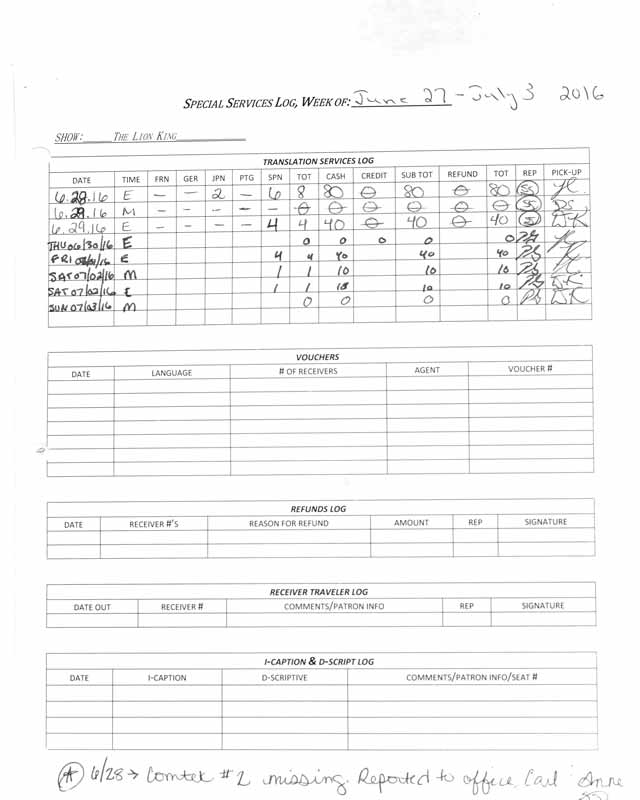 SPECIAL SERVICES LOG, WEEK OF: June 27 - July 3 2016
SHOW: THE LION KING
TRANSLATION SERVICES LOG
DATE TIME FRN GER JPN PTG SPN TOT CASH CREDIT SUB TOT REFUND TOT REP PICK-UP
6.28.16 E — — 2 — 6 8 80 0 80 0 80 SS
6.29.16 M — — — — — 0 0 0 0 0 0 SS DS
6.29.16 E — — — — 4 4 40 0 40 0 40 SS DK
THU 06/30/16 E 0 0 0 0 0
FRI 07/01/16 E 4 4 40 40 40
SAT 07/02/16 M 1 1 10 10 10 DK
SAT 07/02/16 E 1 1 10 10 10
SUN 07/03/16 M 0 0 0 0 DK
VOUCHERS
DATE LANGUAGE # OF RECEIVERS AGENT VOUCHER #
REFUNDS LOG
DATE RECEIVER #'S REASON FOR REFUND AMOUNT REP SIGNATURE
RECEIVER TRAVELER LOG
DATE OUT RECEIVER # COMMENTS/PATRON INFO REP SIGNATURE
I-CAPTION & D-SCRIPT LOG
DATE I-CAPTION D-SCRIPTIVE COMMENTS/PATRON INFO/SEAT #
6/28 → Comtek #2 missing. Reported to office, Carl Anne
SS